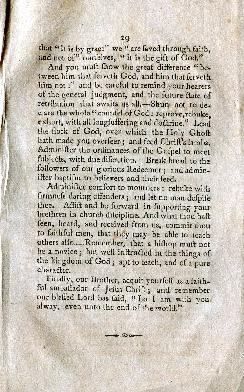 29
that "It is by grace" we "are saved through faith,
and not of" ourselves, "it is the gift of God."
And you must show the great difference "be-
tween him that serveth God, and him that serveth
him not:" and be careful to remind your hearers
of the general judgment, and the future state of
retribution that awaits us all.—Shun not to de-
clare the whole "counsel of God: reprove, rebuke,
exhort, with all longsuffering and doctrine." Lead
the flock of God, over which the Holy Ghost
hath made you overseer; and feed Christ's lambs.
Administer the ordinances of the Gospel to meet
subjects, with due discretion. Break bread to the
followers of our glorious Redeemer; and admin-
ister baptism to believers and their seed.
Administer comfort to mourners: rebuke with
firmness daring offenders; and let no man despise
thee. Assist and be forward in supporting your
brethren in church discipline. And what thou hast
seen, heard, and received from us, commit thou
to faithful men, that they may be able to teach
others also.—Remember, that a bishop must not
be a novice; but well instructed in the things of
the kingdom of God; apt to teach, and of a pure
character.
Finally, our Brother, acquit yourself as a faith-
ful ambassador of Jesus Christ; and remember
our blessed Lord has said, "Lo I am with you
alway, even unto the end of the world."